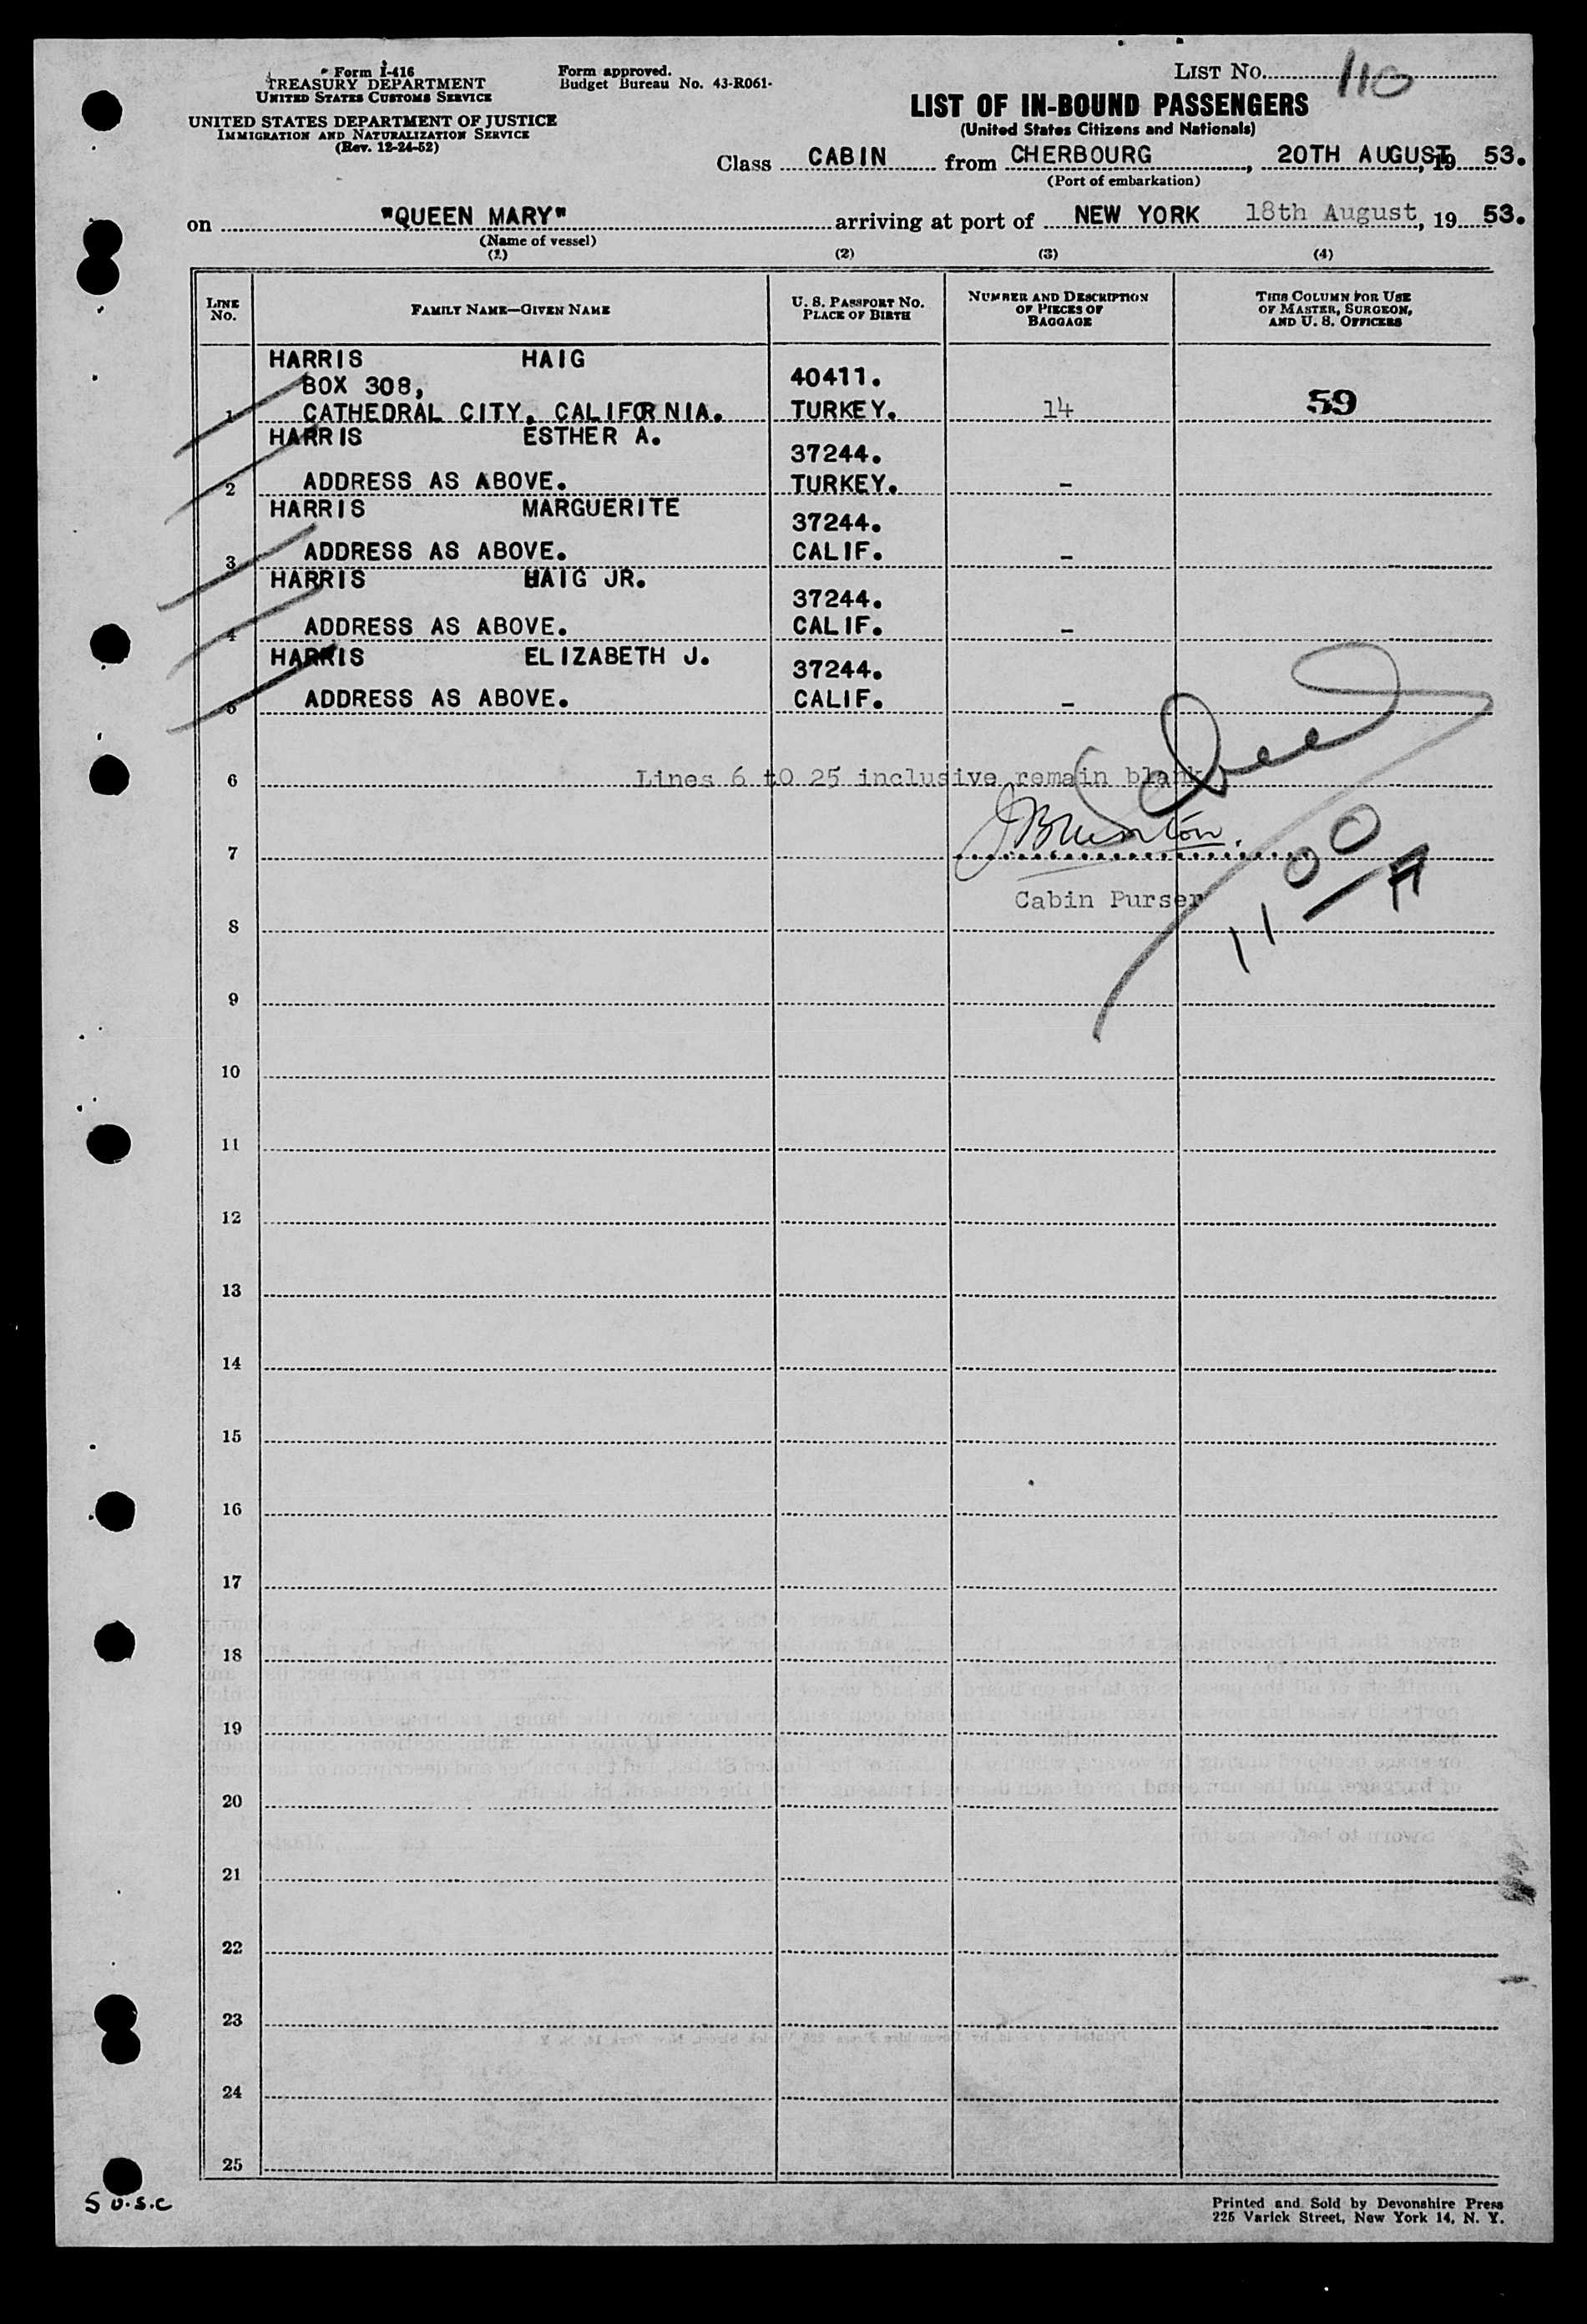 Form I-416
TREASURY DEPARTMENT
UNITED STATES CUSTOMS SERVICE
UNITED STATES DEPARTMENT OF JUSTICE
IMMIGRATION AND NATURALIZATION SERVICE
(Rev. 12-24-52)
Form approved.
Budget Bureau No. 43-R061-
LIST NO. 110
LIST OF IN-BOUND PASSENGERS
(United States Citizens and Nationals)
Class CABIN from CHERBOURG, 20TH AUGUST, 19 53.
(Port of embarkation)
on "QUEEN MARY" arriving at port of NEW YORK 18th August, 19 53.
(Name of vessel)
(1) (2) (3) (4)
LINE NO. FAMILY NAME—GIVEN NAME U. S. PASSPORT NO. PLACE OF BIRTH NUMBER AND DESCRIPTION OF PIECES OF BAGGAGE THIS COLUMN FOR USE OF MASTER, SURGEON, AND U. S. OFFICERS
HARRIS HAIG
BOX 308, 40411.
1 CATHEDRAL CITY, CALIFORNIA. TURKEY. 14 59
HARRIS ESTHER A.
37244.
2 ADDRESS AS ABOVE. TURKEY. -
HARRIS MARGUERITE
37244.
3 ADDRESS AS ABOVE. CALIF. -
HARRIS HAIG JR.
37244.
4 ADDRESS AS ABOVE. CALIF. -
HARRIS ELIZABETH J.
37244.
5 ADDRESS AS ABOVE. CALIF. -
6 Lines 6 to 25 inclusive remain blank
7
Cabin Purser
11 00 A
8
9
10
11
12
13
14
15
16
17
18
19
20
21
22
23
24
25
5 U.S.C
Printed and Sold by Devonshire Press
225 Varick Street, New York 14, N. Y.